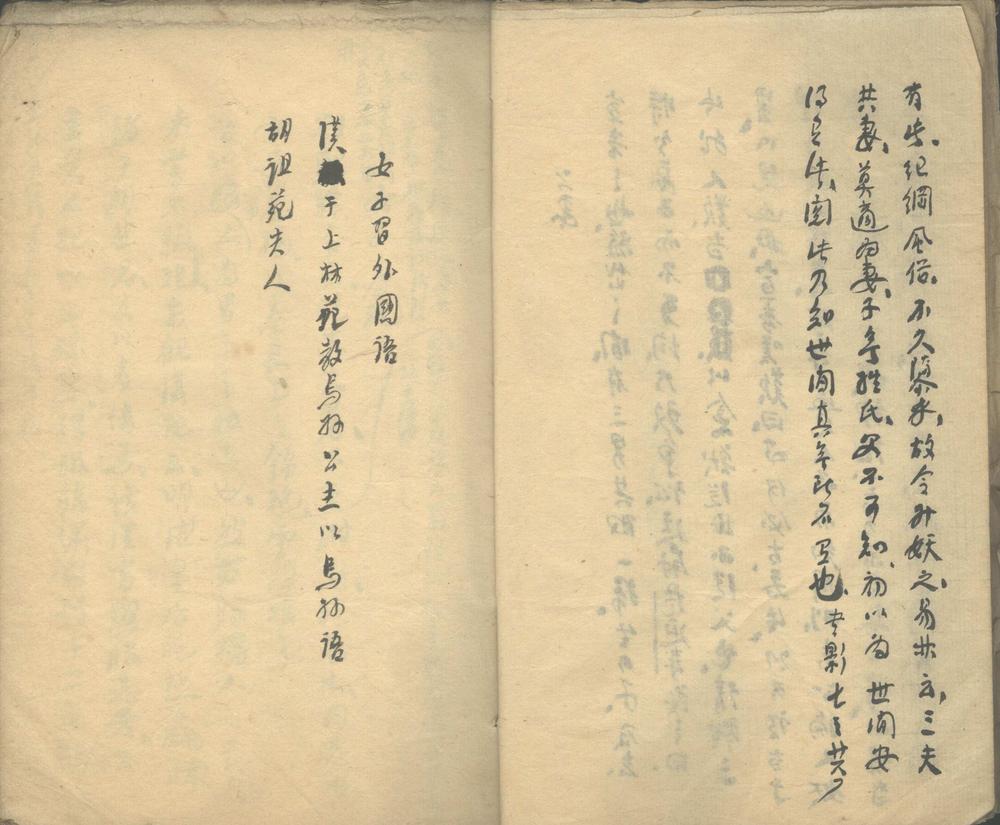 有失纪綱風俗、不久墜水、故令升妖之、易林云、三夫
共妻、莫適为妻、子無姓氏、父不可知、初以为世间安
得有此、閱此乃知世间真無所不有也、書影七之廿六
女子習外國語
漢于上林苑教烏孙公主以烏孙語
胡詛苑夫人